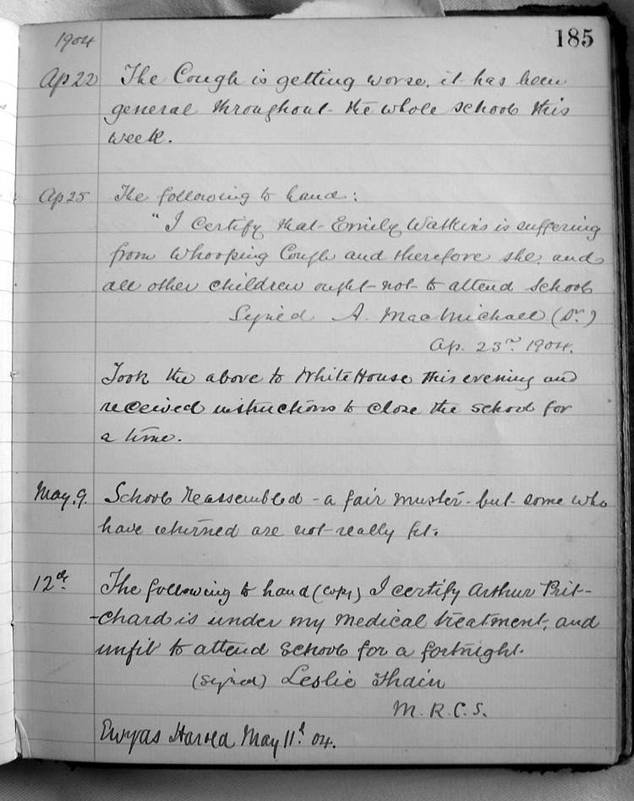 185
1904
Ap 22 The Cough is getting worse, it has been
general throughout the whole school this
week.
Ap 25 The following to hand:
"I certify that Emily Watkins is suffering
from Whooping Cough and therefore she and
all other children ought not to attend school
Signed A. MacMichael (Dr.)
Ap. 23rd 1904.
Took the above to White House this evening and
received instructions to close the school for
a time.
May. 9. School reassembled - a fair muster - but some who
have returned are not really fit.
12th. The following to hand (copy) I certify Arthur Prit-
-chard is under my medical treatment, and
unfit to attend school for a fortnight.
(signed) Leslie Thain
M.R.C.S.
Ewyas Harold May 11th 04.